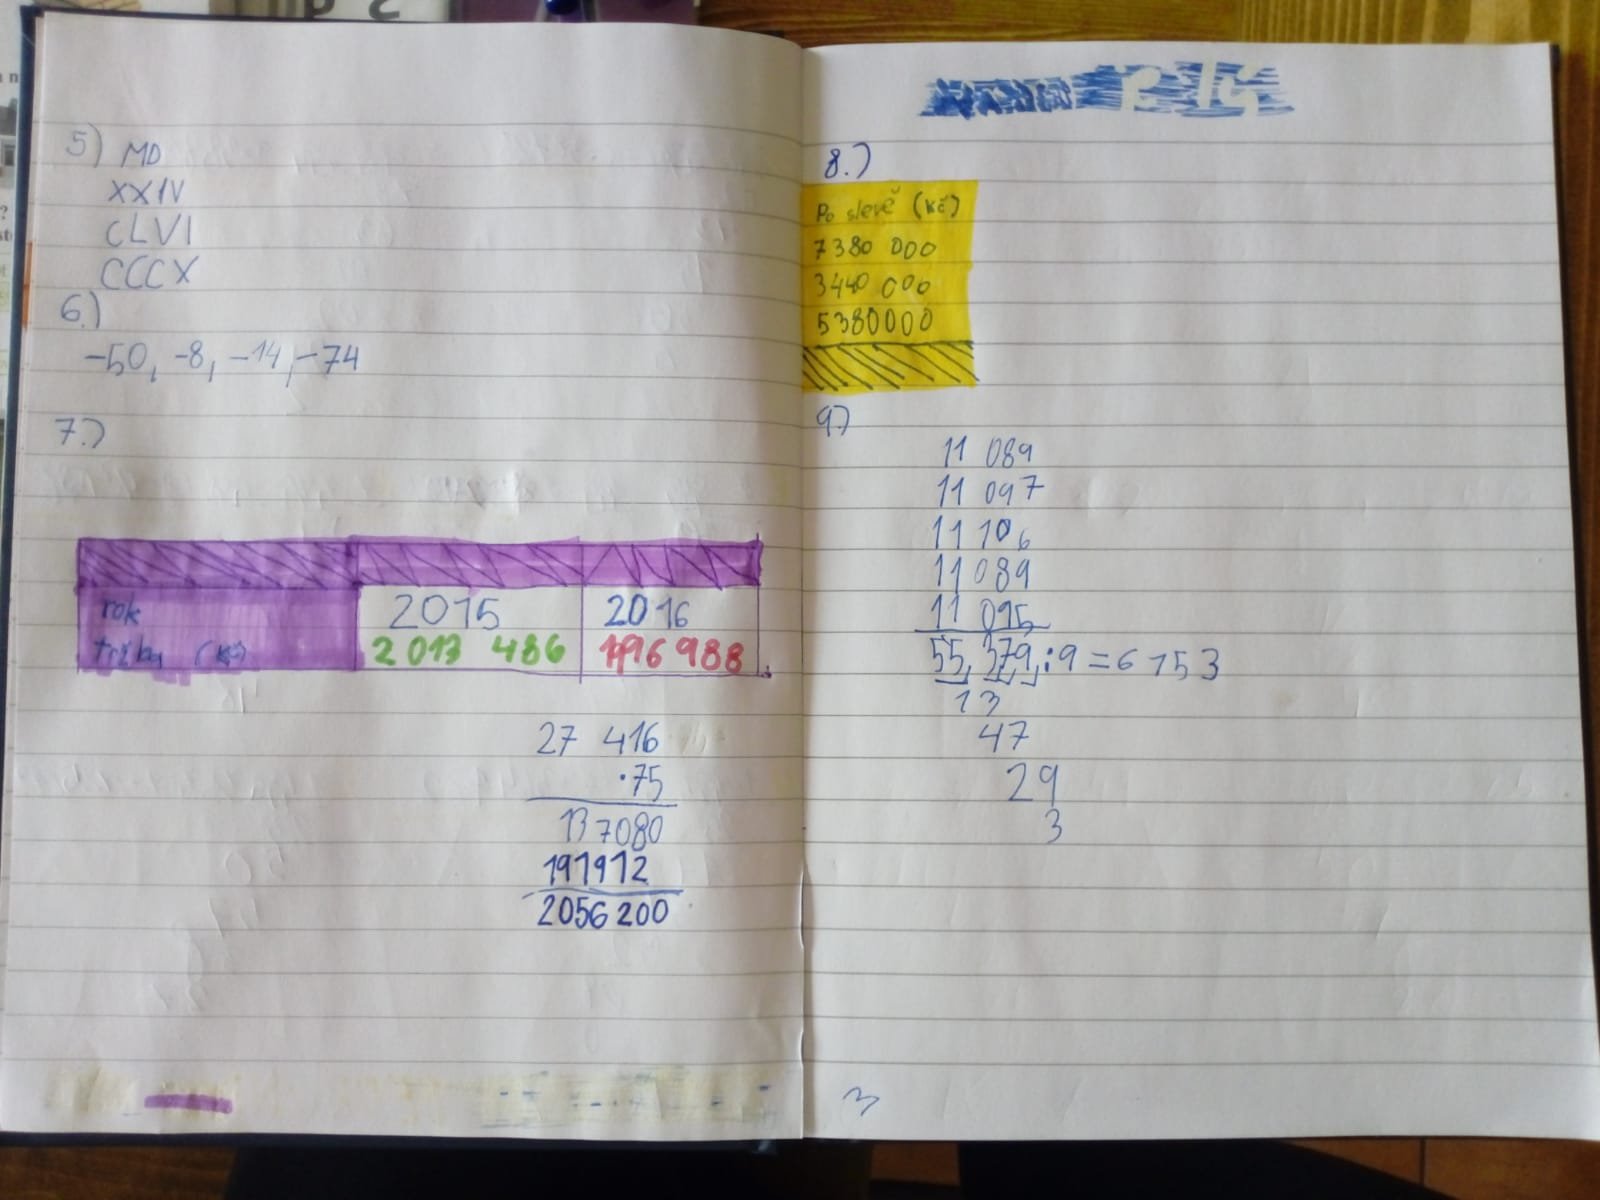 5) MD
XXIV
CLVI
CCCX
6.)
-50, -8, -14, -74
7.)
rok 2015 2016
tržby (Kč) 2 013 486 1996 988
27 416
·75
137080
191912
2056200
P 15
8.)
Po slevě (Kč)
7380 000
3440 000
5380000
9.)
11 089
11 097
11 106
11 089
11 095
55 379 : 9 = 6 153
13
47
29
3
3